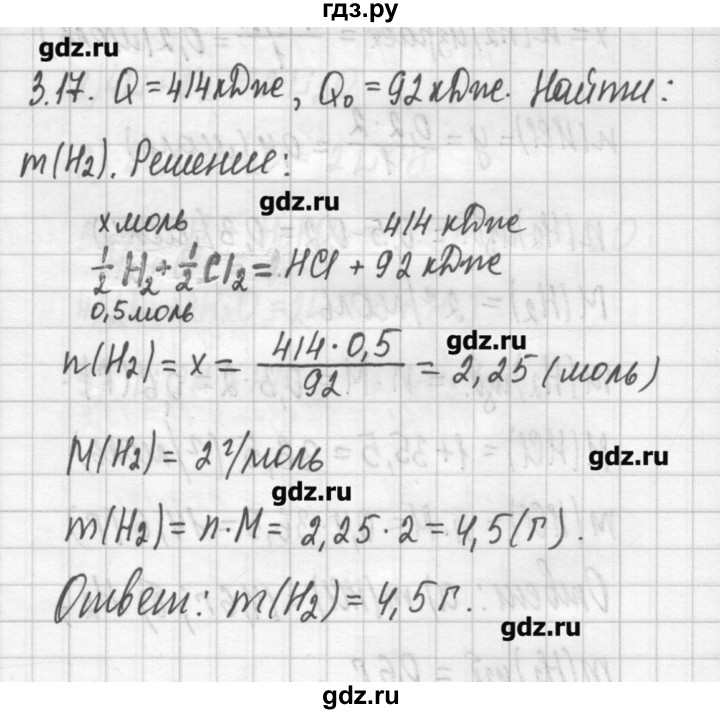 гдз.ру
gdz.ru
3.17. Q = 414 кДже, Q₀ = 92 кДже. Найти:
m(H₂). Решение:
gdz.ru
x моль 414 кДже
1/2 H₂ + 1/2 Cl₂ = HCl + 92 кДже
0,5 моль
n(H₂) = x = 414·0,5/92 = 2,25 (моль)
gdz.ru
M(H₂) = 2 г/моль
gdz.ru
gdz.ru
m(H₂) = n·M = 2,25·2 = 4,5 (г).
Ответ: m(H₂) = 4,5 г.
gdz.ru
gdz.ru